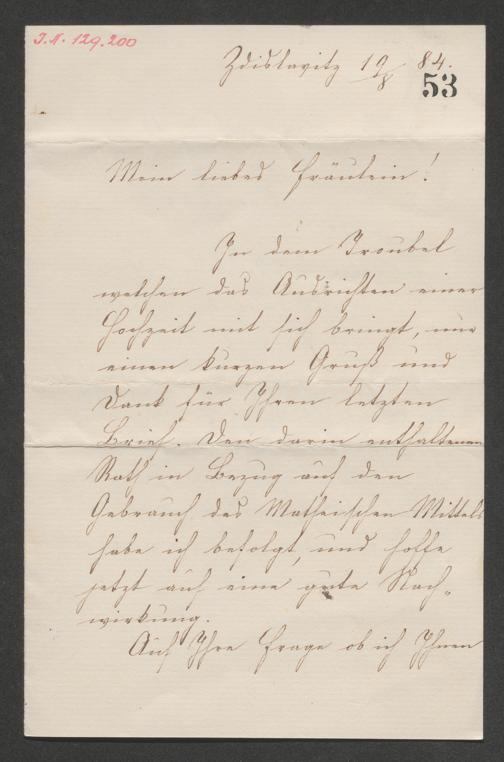 J.N. 129.200
Zdislavitz 19/8 84.
53
Mein liebes Fräulein!
In dem Troubel
welchen das Ausrichten einer
Hochzeit mit sich bringt, nur
einen kurzen Gruß und
Dank für Ihren letzten
Brief. Den darin enthaltenen
Rath in Bezug auf den
Gebrauch des Matheischen Mittels
habe ich befolgt, und hoffe
jetzt auf eine gute Nach-
wirkung.
Auf Ihre Frage ob ich Ihnen